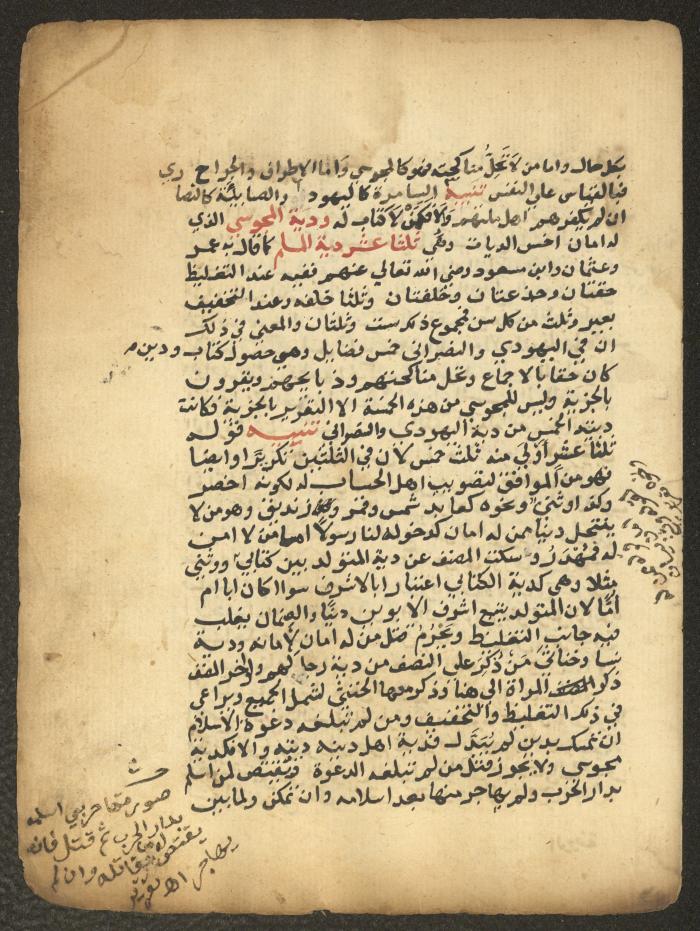 بكل حال واما من لا تحل مناكحته فهو كالمجوسي واما الاطراف والجراح
فبالقياس على النفس تنبيه السامرة كاليهود والصابئة كالنصا
ان لم يكفرهم اهل ملتهم والا فكمن لا كتاب له ودية المجوسي الذي
له امان اخس الديات وهي ثلثا عشر دية المسلم كما قال به عمر
وعثمان وابن مسعود رضي الله تعالى عنهم ففيه عند التغليظ
حقتان وجذعتان وخلفتان وثلثا خلفة وعند التخفيف
بعير وثلث من كل سن فمجموع ذلك ست وثلثان والمعنى في ذلك
ان في اليهودي والنصراني خمس فضايل وهي حصول كتاب ودين
كان حقا بالاجماع وتحل مناكحتهم وذبايحهم ويقرون
بالجزية وليس للمجوسي من هذه الخمسة الا التقرير بالجزية فكانت
ديته الخمس من دية اليهودي والنصراني تنبيه قوله
ثلثا عشر اولى منه ثلث خمس لان في الثلثين تكريرا وايضا
فهو من الموافق لتصويب اهل الحساب له لكونه اخصر
وكذا وثني ونحوه كعابد شمس وقمر وزنديق وهو من لا
ينتحل دينا ممن له امان كدخوله لنا رسولا اما من لا امان
له فمهدر وسكت المصنف عن دية المتولد بين كتابي ووثني
مثلا وهي كدية الكتابي اعتبارا بالاشرف سواء اكان ابا ام
اما لان المتولد يتبع اشرف الابوين دينا والضمان يغلب
فيه جانب التغليظ ويحرم قتل من له امان لامانه ودية
نسا وخناثى من ذكر على النصف من دية رجالهم ولو اخر المصنف
ذكر المراة الى هنا وذكر معها الخنثى لشمل الجميع ويراعى
في ذلك التغليظ والتخفيف ومن لم تبلغه دعوة الاسلام
ان تمسك بدين لم يبدل فدية اهل دينه ديته والا فكدية
مجوسي ولا يجوز قتل من لم تبلغه الدعوة ويقتص لمن اسلم
بدار الحرب ولم يهاجر منها بعد اسلامه وان تمكن ولما بين
حربي اسلم
بدار الحرب ثم قتل فانه
يقتص له من قاتله وان لم
يهاجر اه